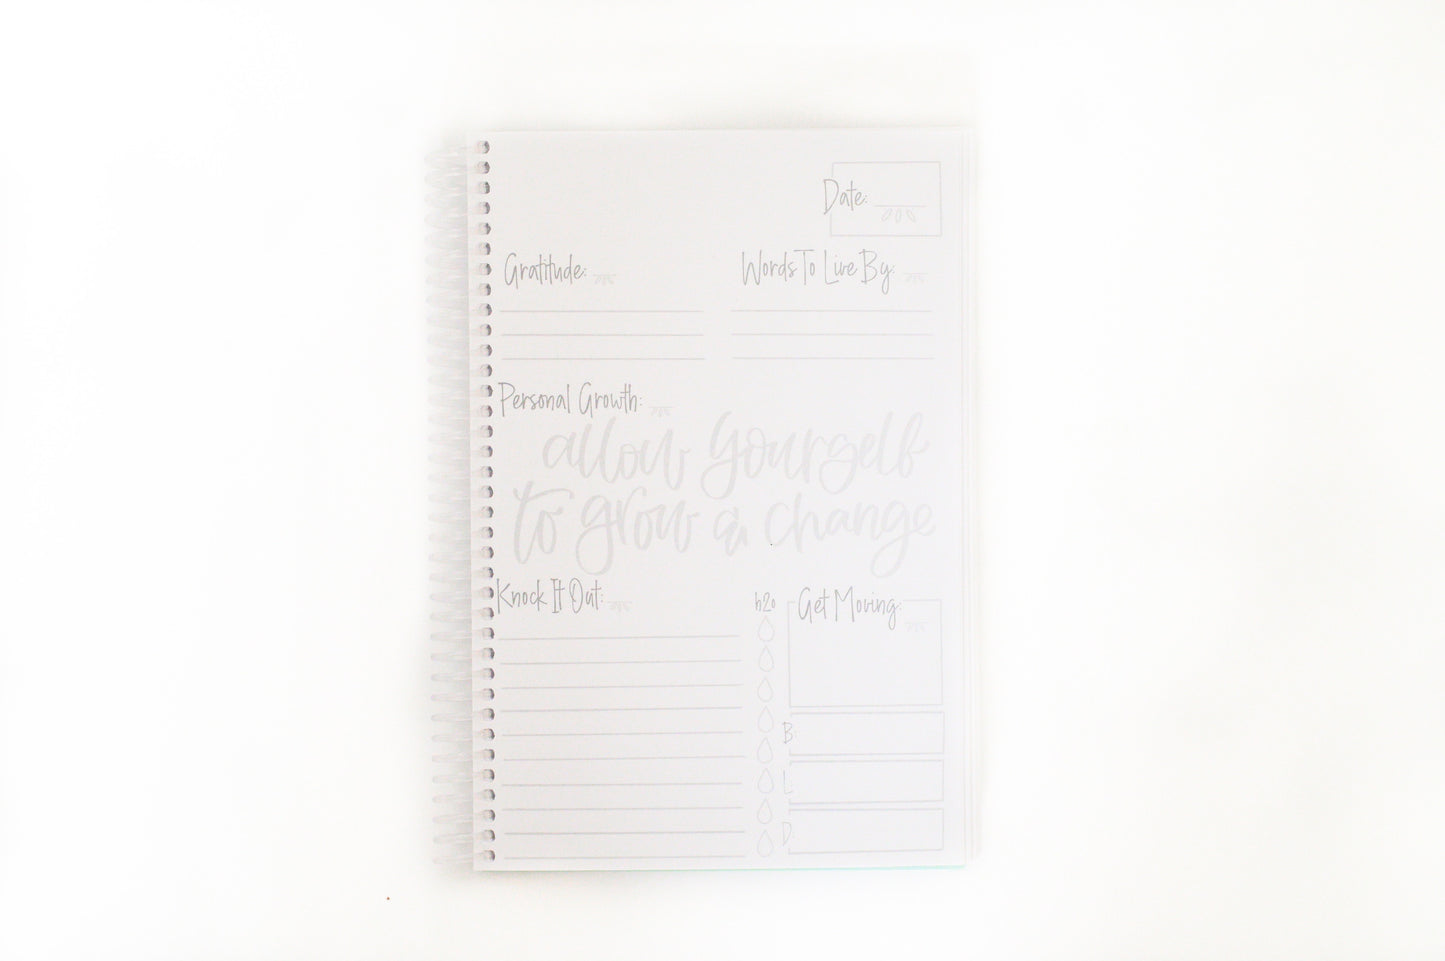 Date:
Gratitude:
Words To Live By:
Personal Growth:
allow yourself
to grow & change
Knock It Out:
h2o
Get Moving:
B:
L:
D: